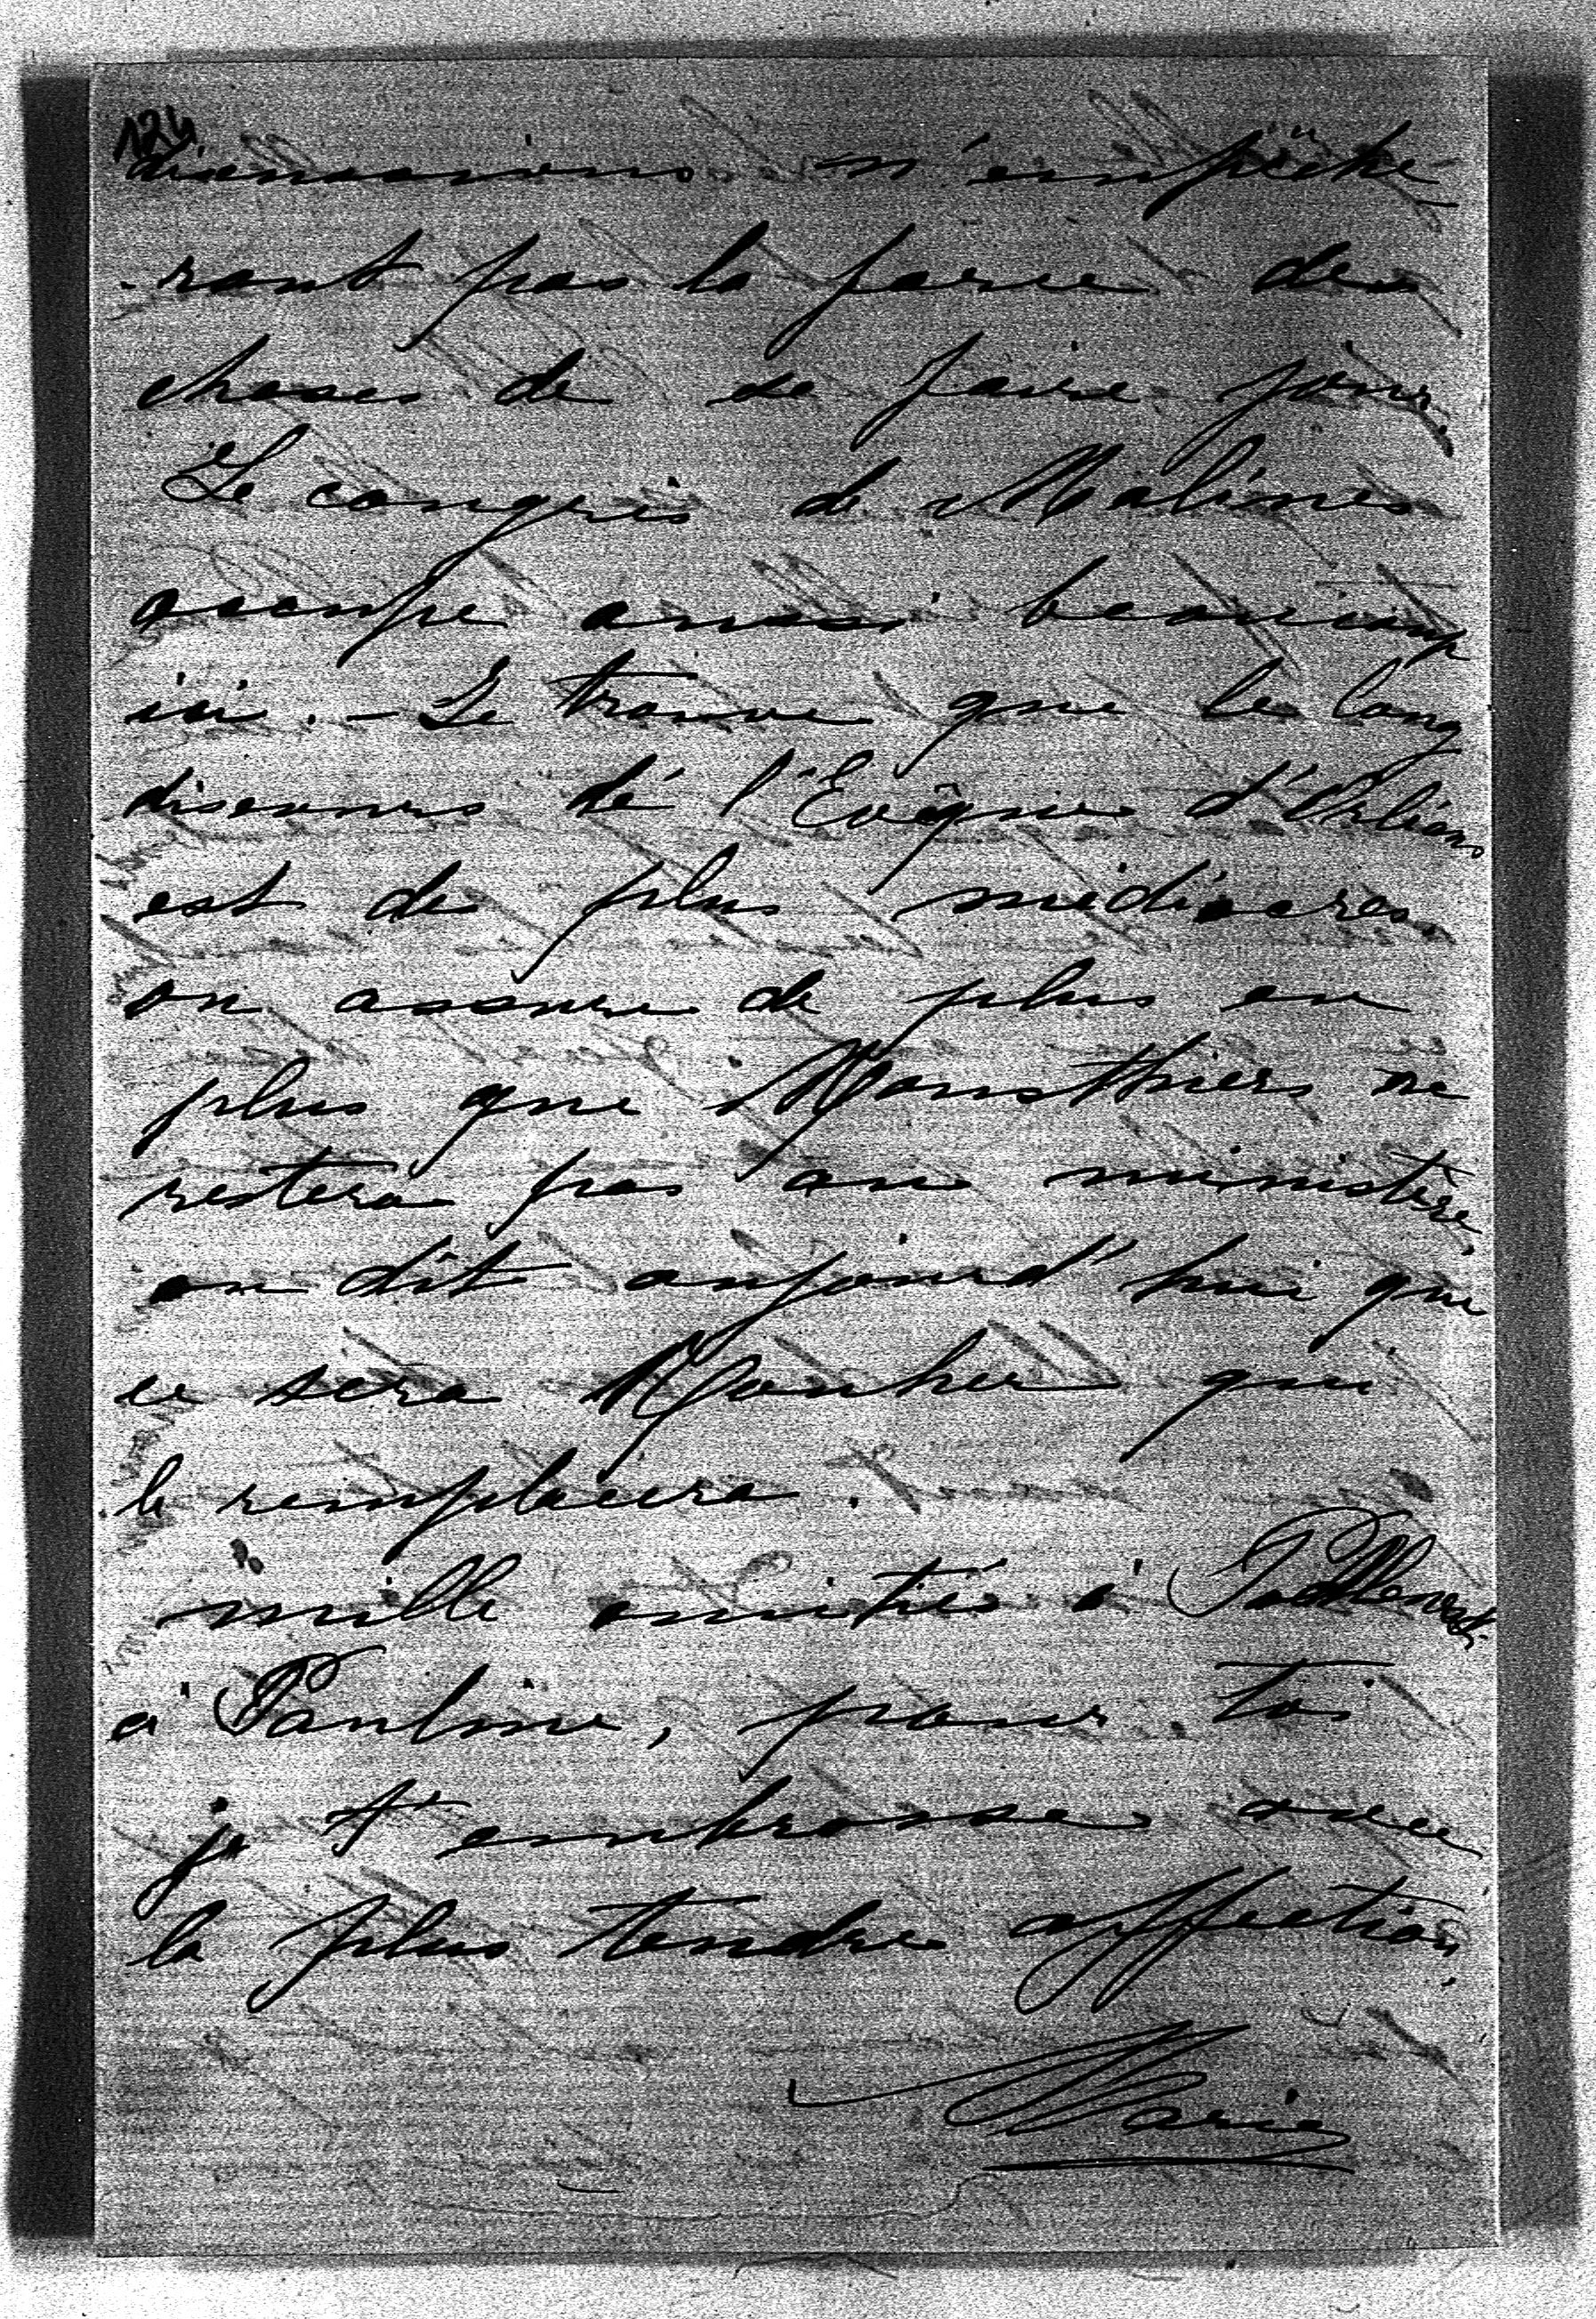 124
discussions n'empêche
-ront pas la force des
choses de se faire jour.
Le congrès de Malines
occupe aussi beaucoup
ici. - Je trouve que le long
discours de l'Evêque d'Orléans
est des plus médiocres.
on assure de plus en
plus que Mousthiers ne
restera pas au ministère,
on dit aujourd'hui que
ce sera Rouher qui
le remplacera.
mille amitiés à
à Pauline, pour toi
je t'embrasse avec
la plus tendre affection.
Marie